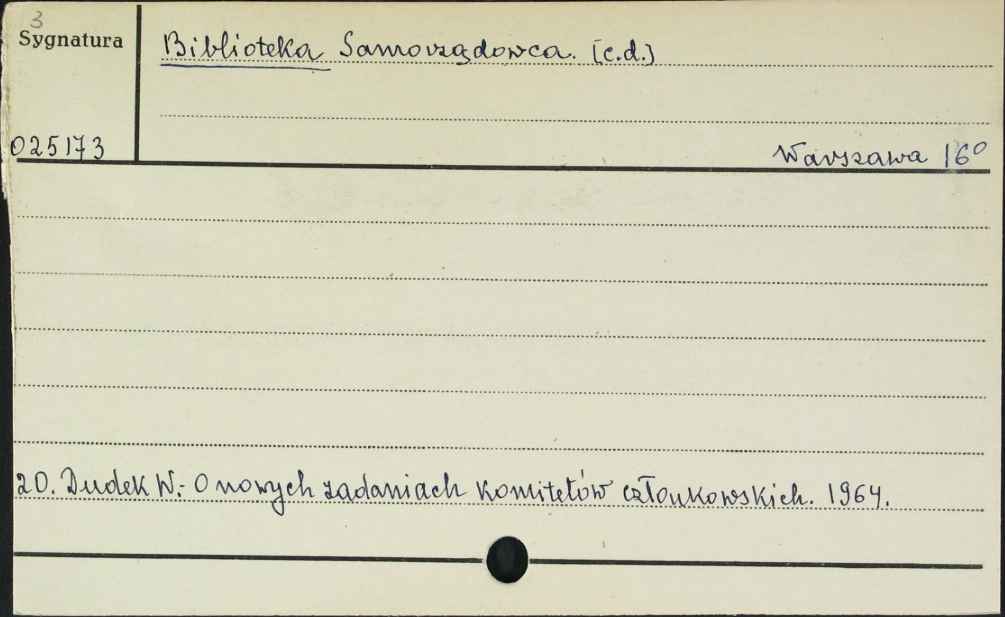 3
Sygnatura
Biblioteka Samorządowca. [c.d.]
025173
Warszawa 16°
20. Dudek W.: O nowych zadaniach komitetów członkowskich. 1964.